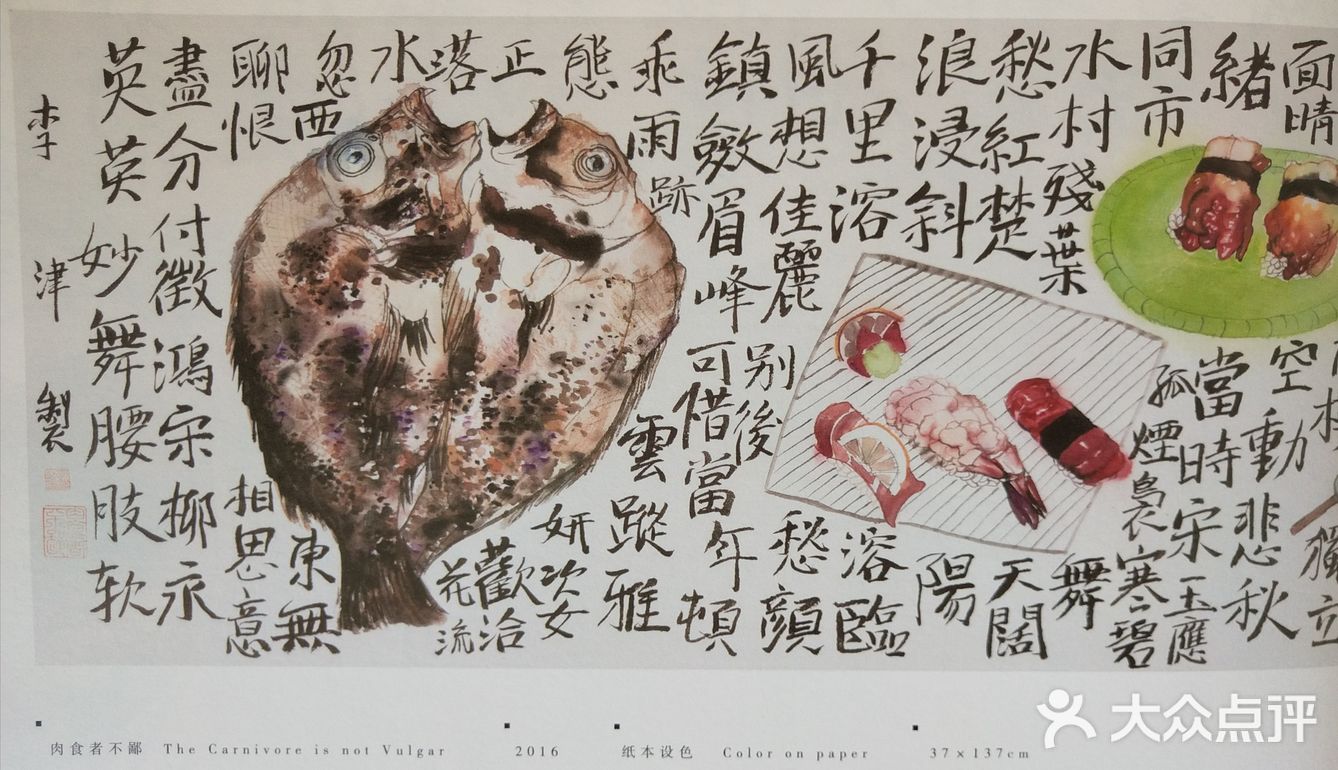 獨立
面晴
空
動悲秋
緒
當時宋玉應
同市
孤煙裊寒碧
水村殘葉
舞
愁紅楚
天闊
浪浸斜
陽
千里溶
溶臨
風想佳麗
别後
愁顏
鎮斂眉峰可惜當年頓
乖雨跡
雲蹤雅
態
妍姿
正
歡洽
落
花流
水
忽西
東無
聊恨
相思意
盡分付徵鴻宋柳永
英英妙舞腰肢软
李津製
肉食者不鄙 The Carnivore is not Vulgar 2016 纸本设色 Color on paper 37×137cm
大众点评